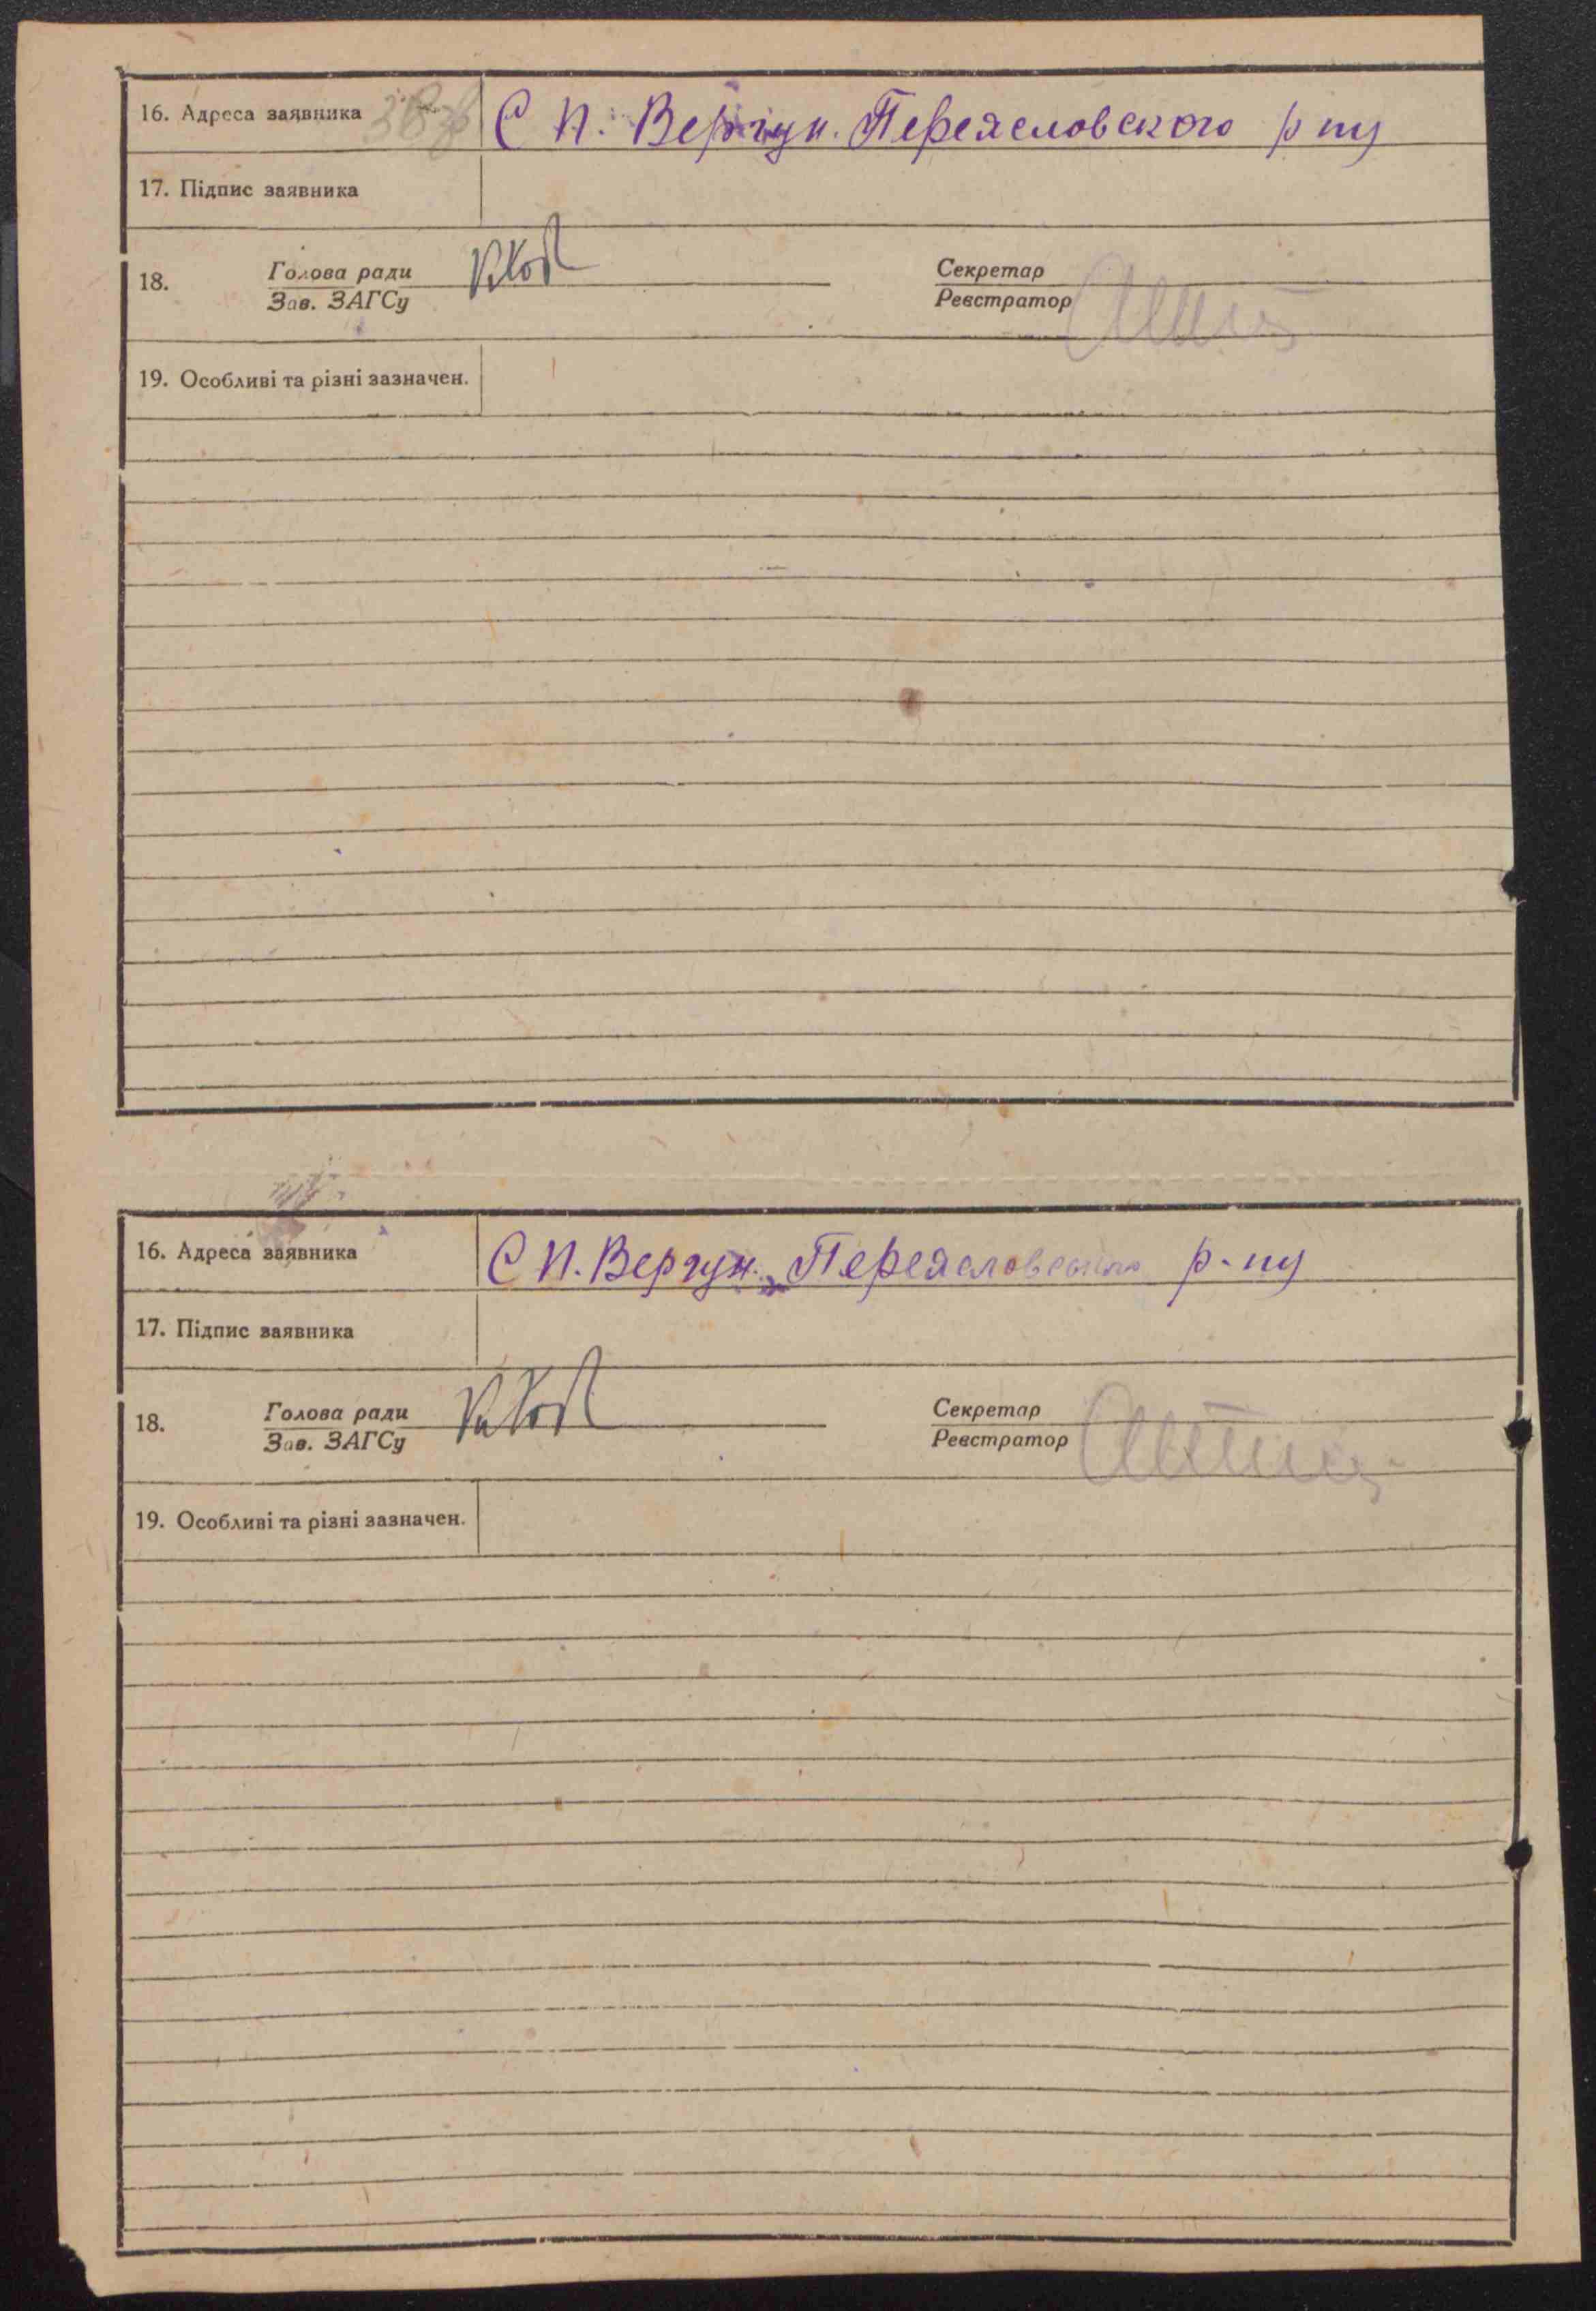 16. Адреса заявника С П. Вергун. Переясловского р ну
17. Підпис заявника
18. Голова ради Секретар
Зав. ЗАГСу Реєстратор
19. Особливі та різні зазначен.
16. Адреса заявника С П. Вергун. Переясловского р-ну
17. Підпис заявника
18. Голова ради Секретар
Зав. ЗАГСу Реєстратор
19. Особливі та різні зазначен.